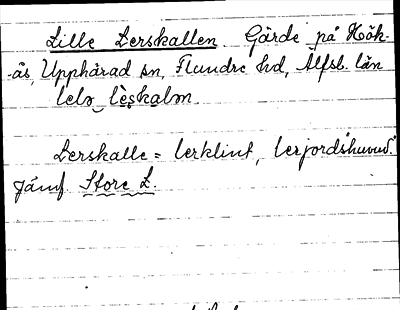 Lille Lerskallen. Gärde på Hök-
-ås, Upphärad sn, Flundre hd, Älfsb. län
lelə lèskalən.
Lerskalle = lerklint, lerjords"huvud".
Jämf. Store L.